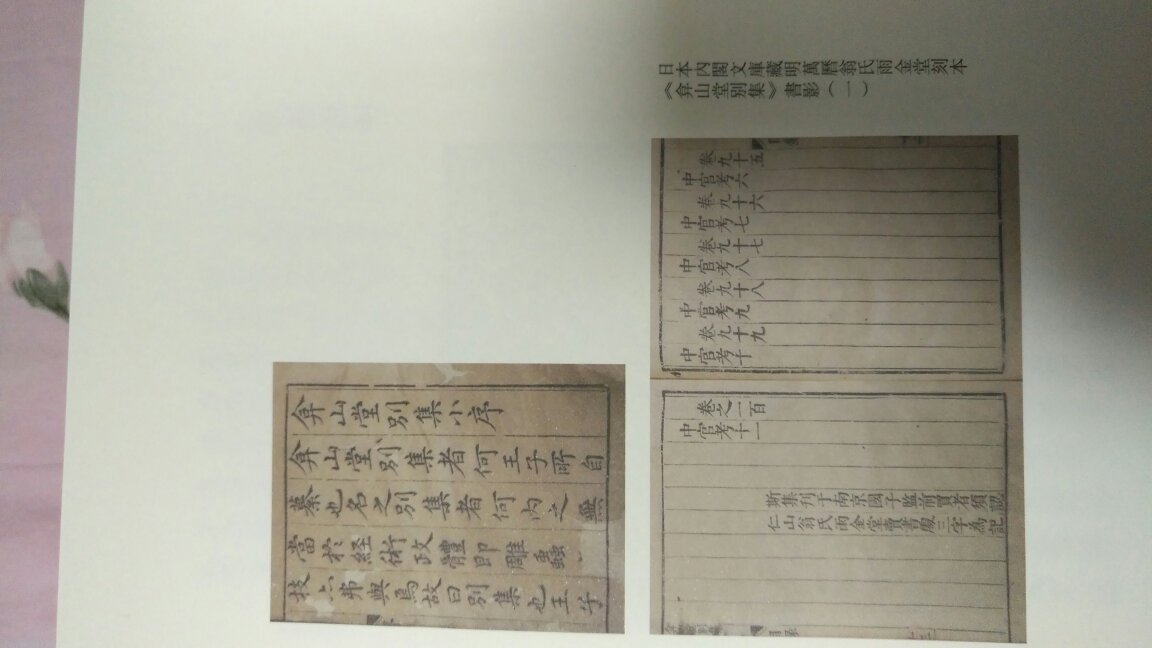 日本內閣文庫藏明萬曆翁氏雨金堂刻本
《弇山堂別集》書影(一)
卷九十五
中官考六
卷九十六
中官考七
卷九十七
中官考八
卷九十八
中官考九
卷九十九
中官考十
卷之一百
中官考十一
斯集刊于南京國子監前買者須認
仁山翁氏雨金堂書廠三字為記
目錄
弇山堂別集小序
弇山堂別集者何王子所自
纂也名之別集者何內之無
當扵経術政體即雕蟲
技亦弗與焉故曰別集也王子